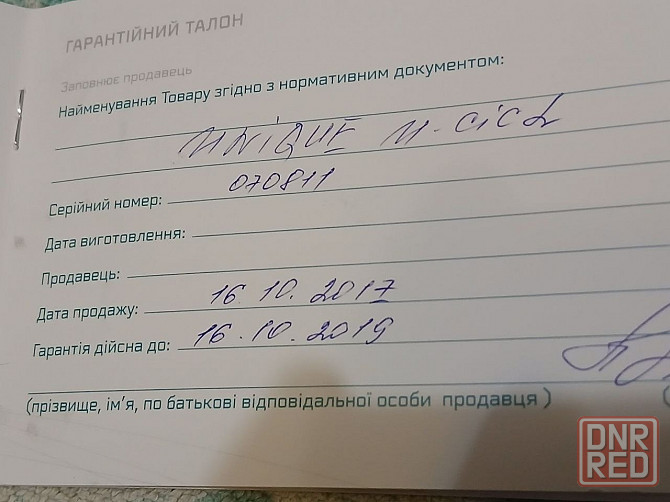 ГАРАНТІЙНИЙ ТАЛОН
Заповнює продавець
Найменування Товару згідно з нормативним документом:
UNIQUE U-CICL
Серійний номер: 070811
Дата виготовлення:
Продавець:
Дата продажу: 16.10.2017
Гарантія дійсна до: 16.10.2019
(прізвище, ім'я, по батькові відповідальної особи продавця)
DNR
RED